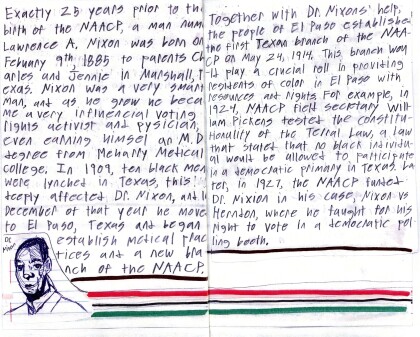 Exactly 25 years prior to the
birth of the NAACP, a man name
Lawrence A. Nixon was born on
Febuary 9th 1885 to parents Ch
arles and Jennie in Marshall, T
exas. Nixon was a very smart
man, and as he grow he beca
me a very influencial voting
rights activist and pysician,
even earning himsel an M.D
degree from Meharry Medical
College. In 1909, ten black men
were lynched in Texas, this
deeply affected Dr. Nixon, and in
December of that year he move
to El Paso, Texas and began
establish medical prac
tices and a new bra
nch of the NAACP.
Together with Dr. Nixons' help,
the people of El Paso establishe
the first Texan branch of the NAA-
CP on May 24, 1914. This branch wou
ld play a crucial roll in providing
residents of color in El Paso with
resources and rights. For example, in
1924, NAACP field secretary Will
iam Pickens tested the constitu-
tionality of the Terral Law, a law
that stated that no black individu-
al would be allowed to participate
in a democratic primary in Texas. La
ter, in 1927, the NAACP funded
Dr. Nixion in his case, Nixon vs
Herndon, where he faught for his
right to vote in a democratic pol
ling booth.